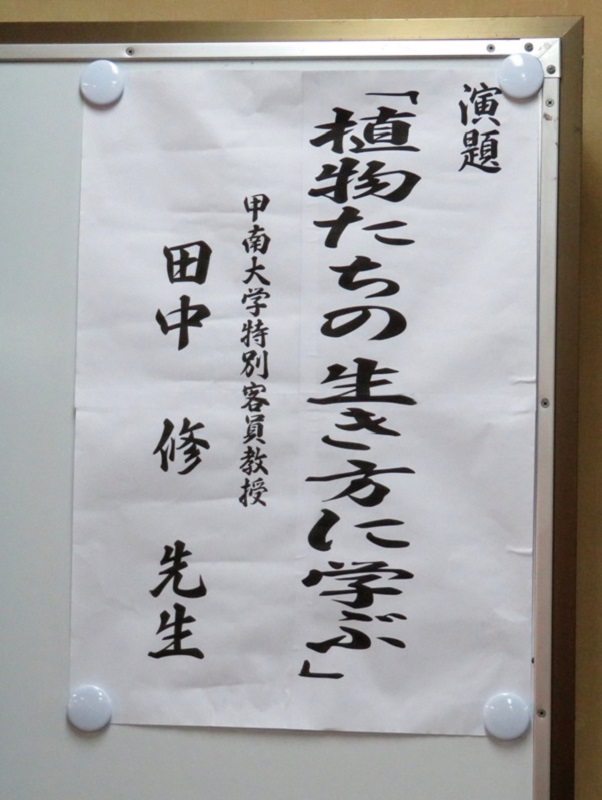 演題
「植物たちの生き方に学ぶ」
甲南大学特別客員教授
田中 修 先生